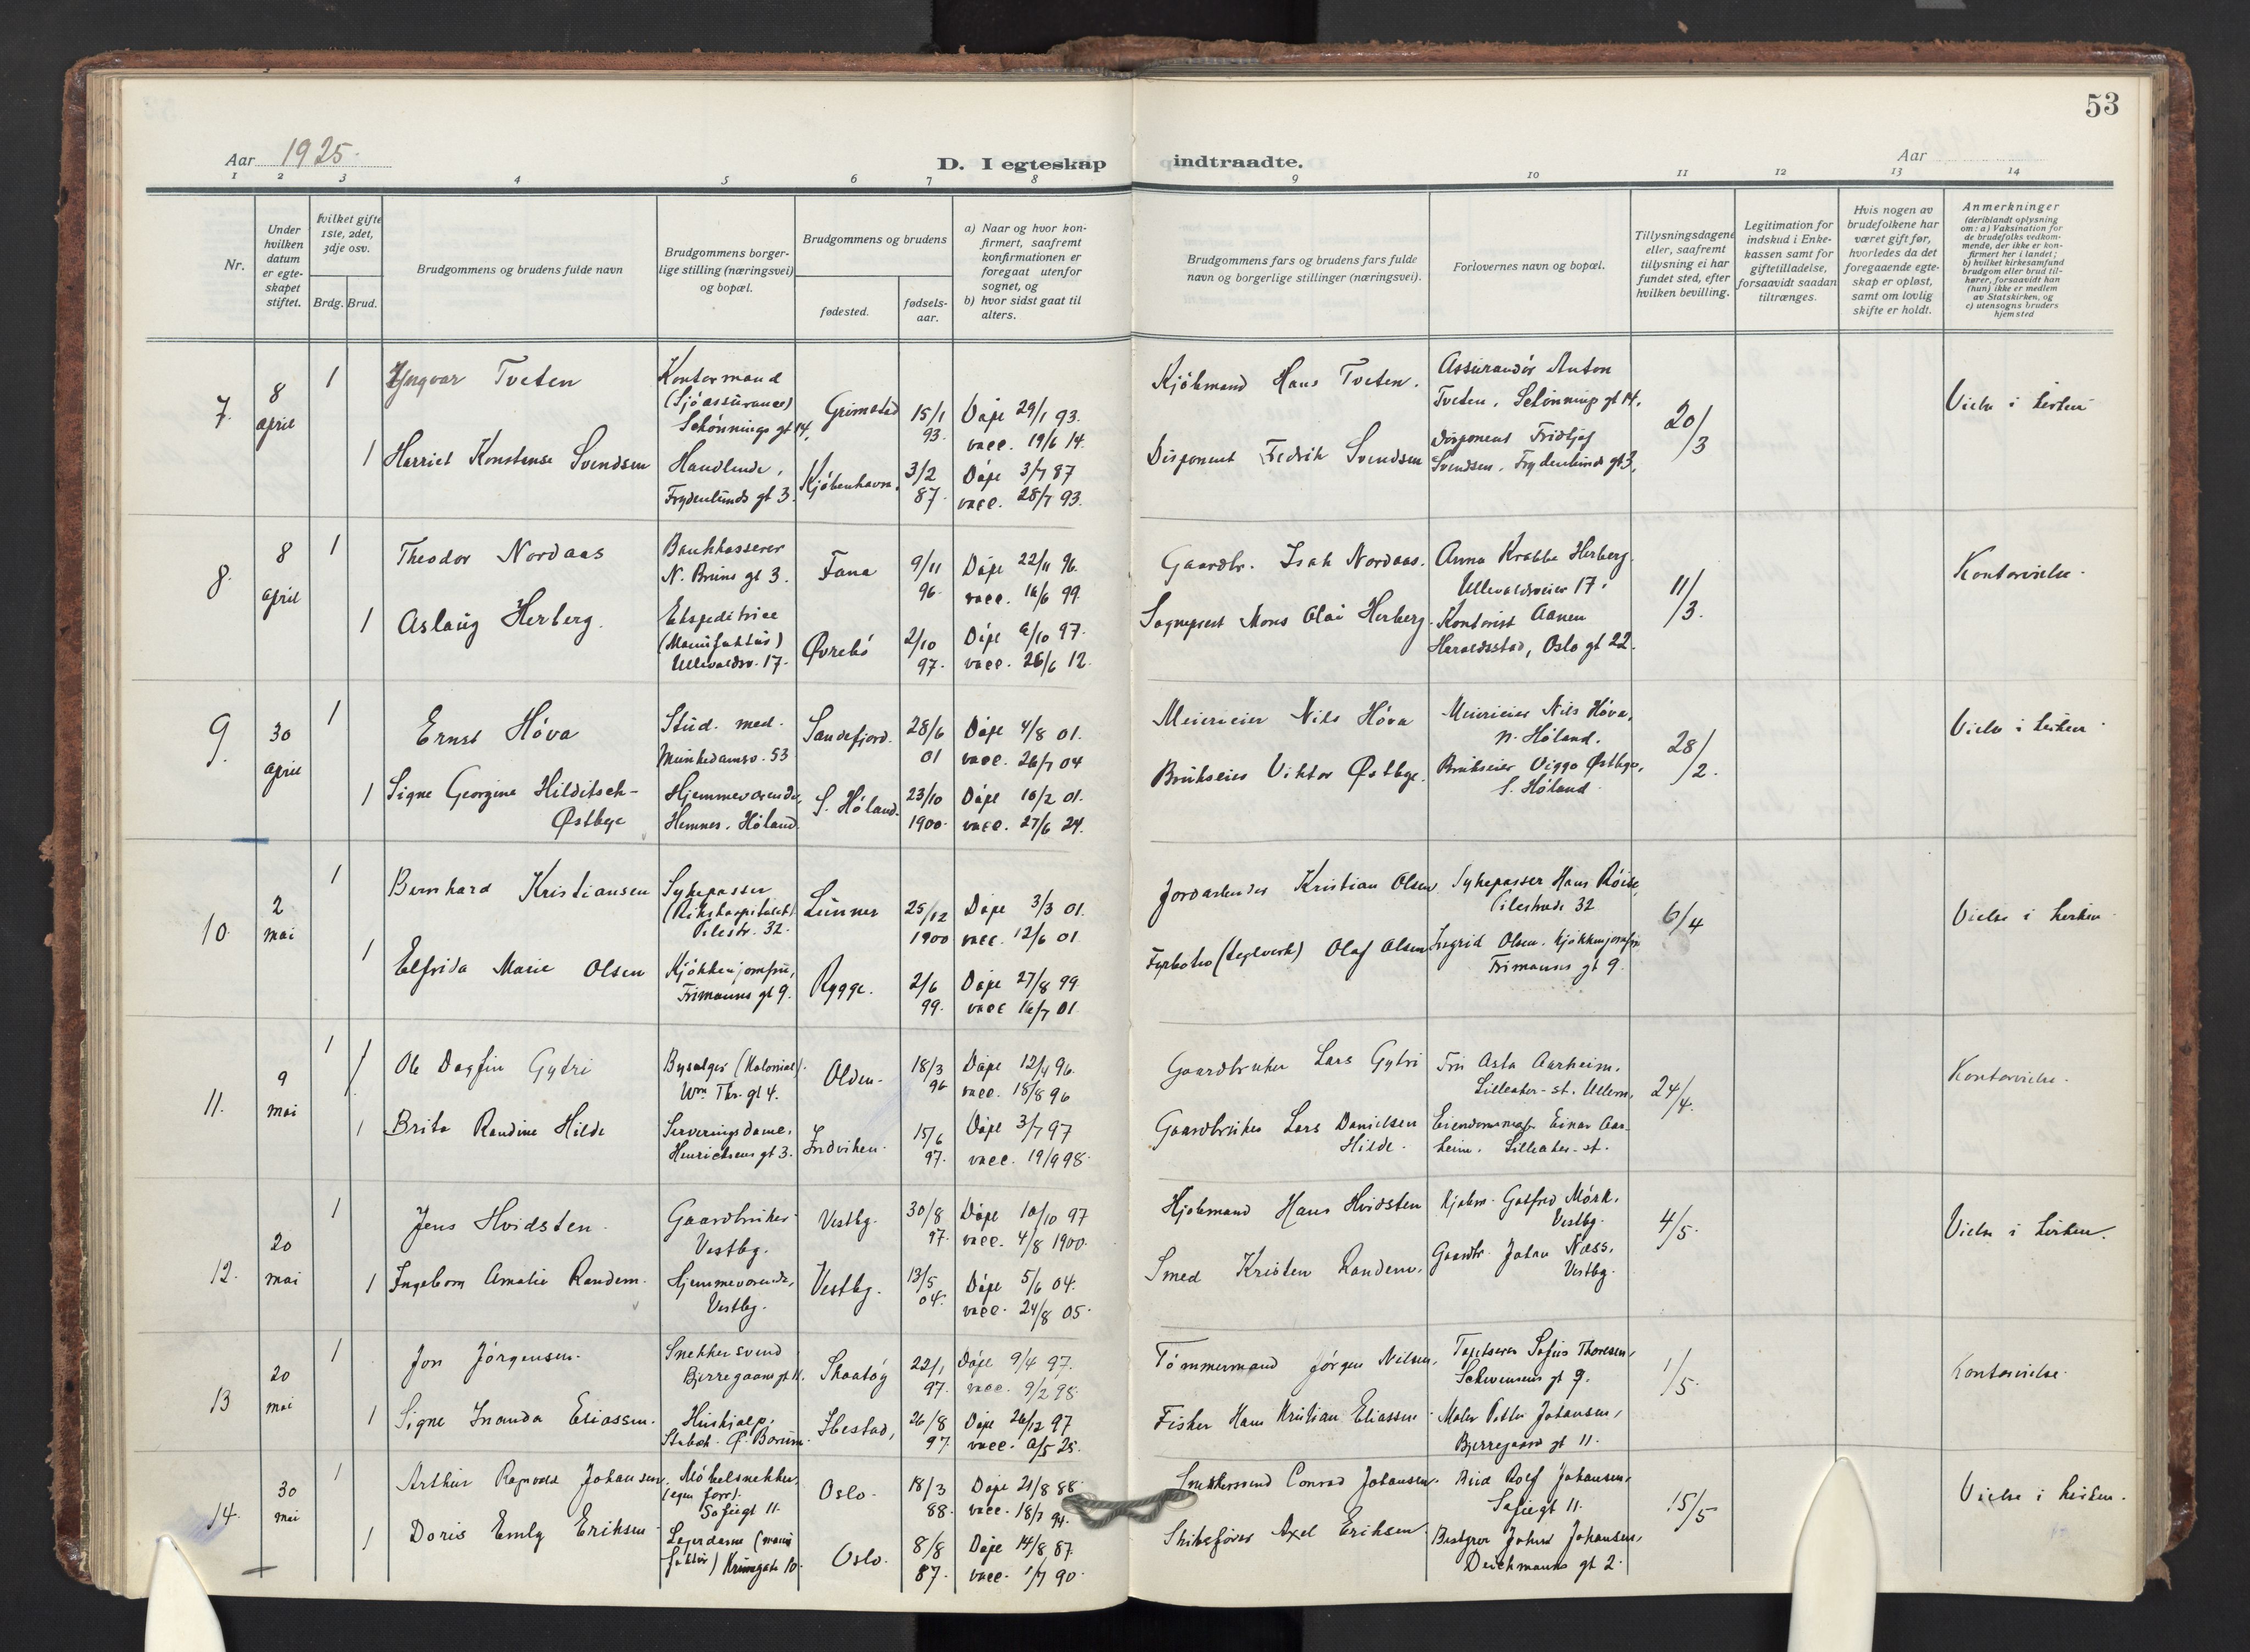 53
Aar 1925.
D. I egteskap indtraadte.
Aar
1 2 3 4 5 6 7 8 9 10 11 12 13 14
Nr.
Under
hvilken
datum
er egte-
skapet
stiftet.
hvilket gifte
1ste, 2det,
3dje osv.
Brdg. Brud.
Brudgommens og brudens fulde navn
Brudgommens borger-
lige stilling (næringsvei)
og bopæl.
Brudgommens og brudens
fødested.
fødsels-
aar.
a) Naar og hvor kon-
firmert, saafremt
konfirmationen er
foregaat utenfor
sognet, og
b) hvor sidst gaat til
alters.
Brudgommens fars og brudens fars fulde
navn og borgerlige stillinger (næringsvei).
Forlovernes navn og bopæl.
Tillysningsdagene
eller, saafremt
tillysning ei har
fundet sted, efter
hvilken bevilling.
Legitimation for
indskud i Enke-
kassen samt for
giftetilladelse,
forsaavidt saadan
tiltrænges.
Hvis nogen av
brudefolkene har
været gift før,
hvorledes da det
foregaaende egte-
skap er opløst,
samt om lovlig
skifte er holdt.
Anmerkninger
(deriblandt oplysning
om: a) Vaksination for
de brudefolks vedkom-
mende, der ikke er kon-
firmert her i landet;
b) hvilket kirkesamfund
brudgom eller brud til-
hører, forsaavidt han
(hun) ikke er medlem
av Statskirken, og
c) utensogns bruders
hjemsted
7.
8
april
1
Yngvar Tveten
Kontormand
(Sjøassurance)
Schønnings gt 14.
Grimstad
15/1
93.
Døpt 29/1 93.
vacc. 19/6 14.
Kjøbmand Hans Tveten.
Assurandør Anton
Tveten, Schønnings gt 14.
20/3
Vielse i kirken
1
Harriet Konstanse Svendsen
Handlende,
Frydenlunds gt 3.
Kjøbenhavn.
3/2
87.
Døpt 3/7 87
vacc. 28/7 93.
Disponent Fredrik Svendsen
Disponent Fridtjof
Svendsen, Frydenlunds gt 3.
8.
8
april
1
Theodor Nordaas
Bankkasserer
N. Bruns gt 3.
Fana
9/11
96.
Døpt 22/11 96.
vacc. 16/6 99.
Gaardbr. Isak Nordaas.
Anna Krabbe Herberg.
Ullevaldsveien 17.
11/3.
Kontorvielse.
1
Aslaug Herberg.
Ekspeditrice
(Manufaktur)
Ullevaldsv. 17.
Øvrebø
2/10
97.
vacc. 26/6 12.
Sogneprest Mons Olai Herberg.
Kontorist Aanen
Haraldsstad, Oslo gt 22.
9.
30
april
1
Ernst Høva
Stud. med.
Munkedamsv. 53
Sandefjord.
28/6
01
Døpt 4/8 01.
vacc. 26/7 04
Meierieier Nils Høva
Meierieier Nils Høva,
N. Høland.
28/2.
Vielse i kirken
1
Signe Georgine Hilditsch-
Østbye
Hjemmeværende,
Hemnes. Høland.
S. Høland.
23/10
1900.
Døpt 10/2 01.
vacc. 27/6 24.
Brukseier Viktor Østbye.
Brukseier Viggo Østbye,
S. Høland.
10.
2
mai
1
Bernhard Kristiansen
Sykepasser
(Rikshospitalet)
Pilestr. 32.
Lunner
25/12
1900
Døpt 3/3 01.
vacc. 12/6 01
Kristian Olsen.
Sykepasser Hans Røise,
Pilestræde 32
6/4
Vielse i kirken
1
Elfrida Marie Olsen
Kjøkkenjomfru,
Frimanns gt 9.
Rygge.
2/6
99.
Døpt 27/8 99.
vacc 16/7 01.
Fyrbøter (teglverk) Olaf Olsen
Ingrid Olsen. kjøkkenjomfru
Frimanns gt 9.
11.
9
mai
1
Ole Dagfin Gytri
Bysælger (Kolonial).
Wm Thr. gt 4.
Olden.
18/3
96
Døpt 12/4 96.
vacc. 18/8 96
Gaardbruker Lars Gytri
Fru Asta Aarheim.
Lilleaker-st. Ullern,
24/4.
Kontorvielse.
1
Brita Randine Hilde
Serveringsdame.
Henrichsens gt 3.
Indviken.
15/6
97.
Døpt 3/7 97
vacc. 19/9 98.
Gaardbruker Lars Danielsen
Hilde.
Einar Aar-
heim. Lilleaker-st.
12.
20
mai
1
Jens Hvidsten.
Gaardbruker
Vestby.
Vestby.
30/8
97.
Døpt 10/10 97
vacc. 4/8 1900.
Kjøbmand Hans Hvidsten
Kjøbm. Gotfred Mørk.
Vestby.
4/5.
Vielse i kirken.
1
Ingeborg Amalie Randem.
Hjemmeværende,
Vestby.
Vestby.
13/5
04.
Døpt 5/6 04.
vacc. 24/8 05.
Smed Kristen Randem.
Gaardbr. Johan Næss.
Vestby.
13
20
mai
1
Jon Jørgensen.
Snekkersvend
Bjerregaards gt 11.
Skaatøy
22/1
97.
Døpt 9/4 97.
vacc. 9/2 98.
Tømmermand Jørgen Nilsen.
Tapetserer Sofus Thoresen,
Schwensens gt 9.
1/5.
Kontorvielse.
1
Signe Inanda Eliassen.
Hushjælp.
Stabæk. Ø. Bærum.
Ibestad,
26/8
97.
Døpt 26/12 97
Fisker Hans Kristian Eliassen
Maler Petter Johansen,
Bjerregaard gt 11.
14.
30
mai
1
Arthur Ragnvald Johansen.
Møbelsnekker,
(egen forr).
Sofiegt 11.
Oslo.
18/3
88.
Døpt 21/8 88.
vacc. 18/7 94.
Snekkersvend Conrad Johansen.
Rolf Johansen,
Sofiegt 11.
15/5
Vielse i kirken.
1
Doris Emly Eriksen
Lagerdame (manu
faktur) Krumgate 10.
Oslo.
8/8
87.
Døpt 14/8 87.
vacc. 1/7 90.
Skibsfører Axel Eriksen.
Johansen,
Deichmans gt 2.